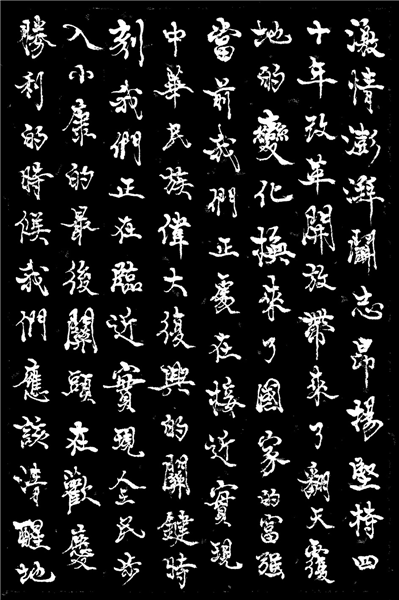 激情澎湃闘志昂揚堅持四
十年改革開放帶來了翻天覆
地的變化換來了國家的富强
當前我們正處在接近實現
中華民族偉大復興的關鍵時
刻我們正在臨近實現全民步
入小康的最後關頭在歡慶
勝利的時候我們應該清醒地